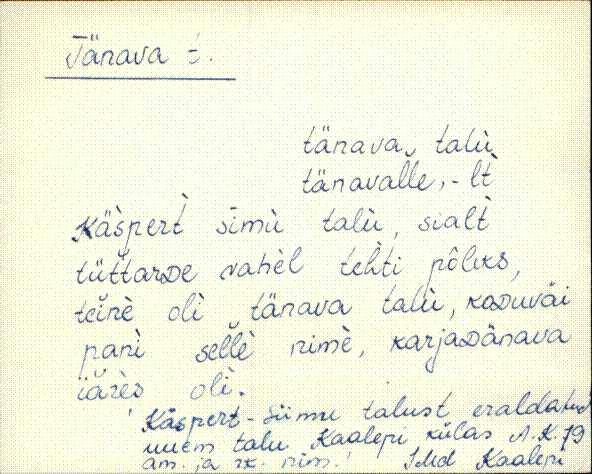 Tänava t.
tänavà, talù
tänavalle, -lt̀
Käspert̀ sìmù talù, sialt̀
tüttarDe vahèl tehti põliks,
teinè oli tänava talù, koDuväi
pani sellè nimè, karjaDänava
iäres oli.
Käspert-Siimu talust eraldatud
uuem talu Kaalepi külas A.K. 79
am. ja rk. nim.! JMd Kaalepi